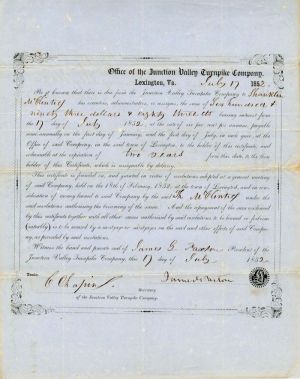 Office of the Junction Valley Turnpike Company.
Lexington, Va. July 17 1852
Be it known that there is due from the Junction Valley Turnpike Company to
executors, administrators, or assigns, the sum of
ninety three dollars & eighty three cts bearing interest from
the 17 day of July 1852, at the rate of six per cent. per annum, payable
semi-annually on the first day of January, and the first day of July, in each year, at the
Office of said Company, in the town of Lexington, to the holder of this certificate, and
redeemable at the expiration of two years from this date, to the
holder of this Certificate, which is assignable by
This certificate is founded on, and granted in virtue of resolutions adopted at a general meeting
of said Company, held on the 18th of February, 1852, at the town of Lexington, and in con-
sideration of money loaned to said Company by the said under the
said resolutions authorising the borrowing of the same. And the repayment of the sum evidenced
by this certificate together with all other sums authorised by said resolutions to be
is to be secured by a mortgage or mortgages on the and other effects of said Company,
as provided by said resolutions.
Witness the hand and of James G. Paxton President of the
Junction Valley Turnpike Company, this 17 day of July 1852
Teste:
Secretary
of the Junction Valley Turnpike Company.
James G. Paxton